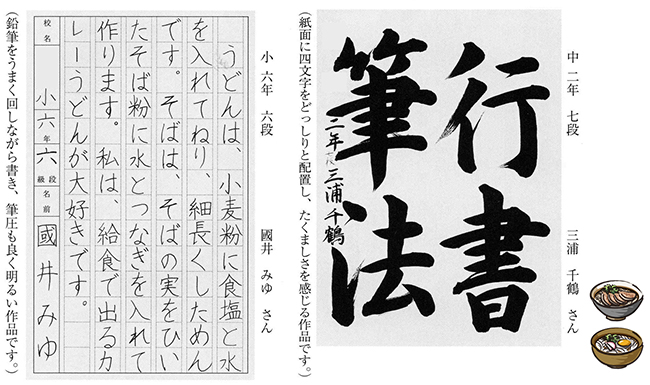 中二年 七段 三浦 千鶴 さん
行書
筆法
二年 三浦千鶴
(紙面に四文字をどっしりと配置し、たくましさを感じる作品です。)
小六年 六段 國井 みゆ さん
うどんは、小麦粉に食塩と水
を入れてねり、細長くしためん
です。そばは、そばの実をひい
たそば粉に水とつなぎを入れて
作ります。私は、給食で出るカ
レーうどんが大好きです。
校名 小六年 六 段級 名前 國井みゆ
(鉛筆をうまく回しながら書き、筆圧も良く明るい作品です。)